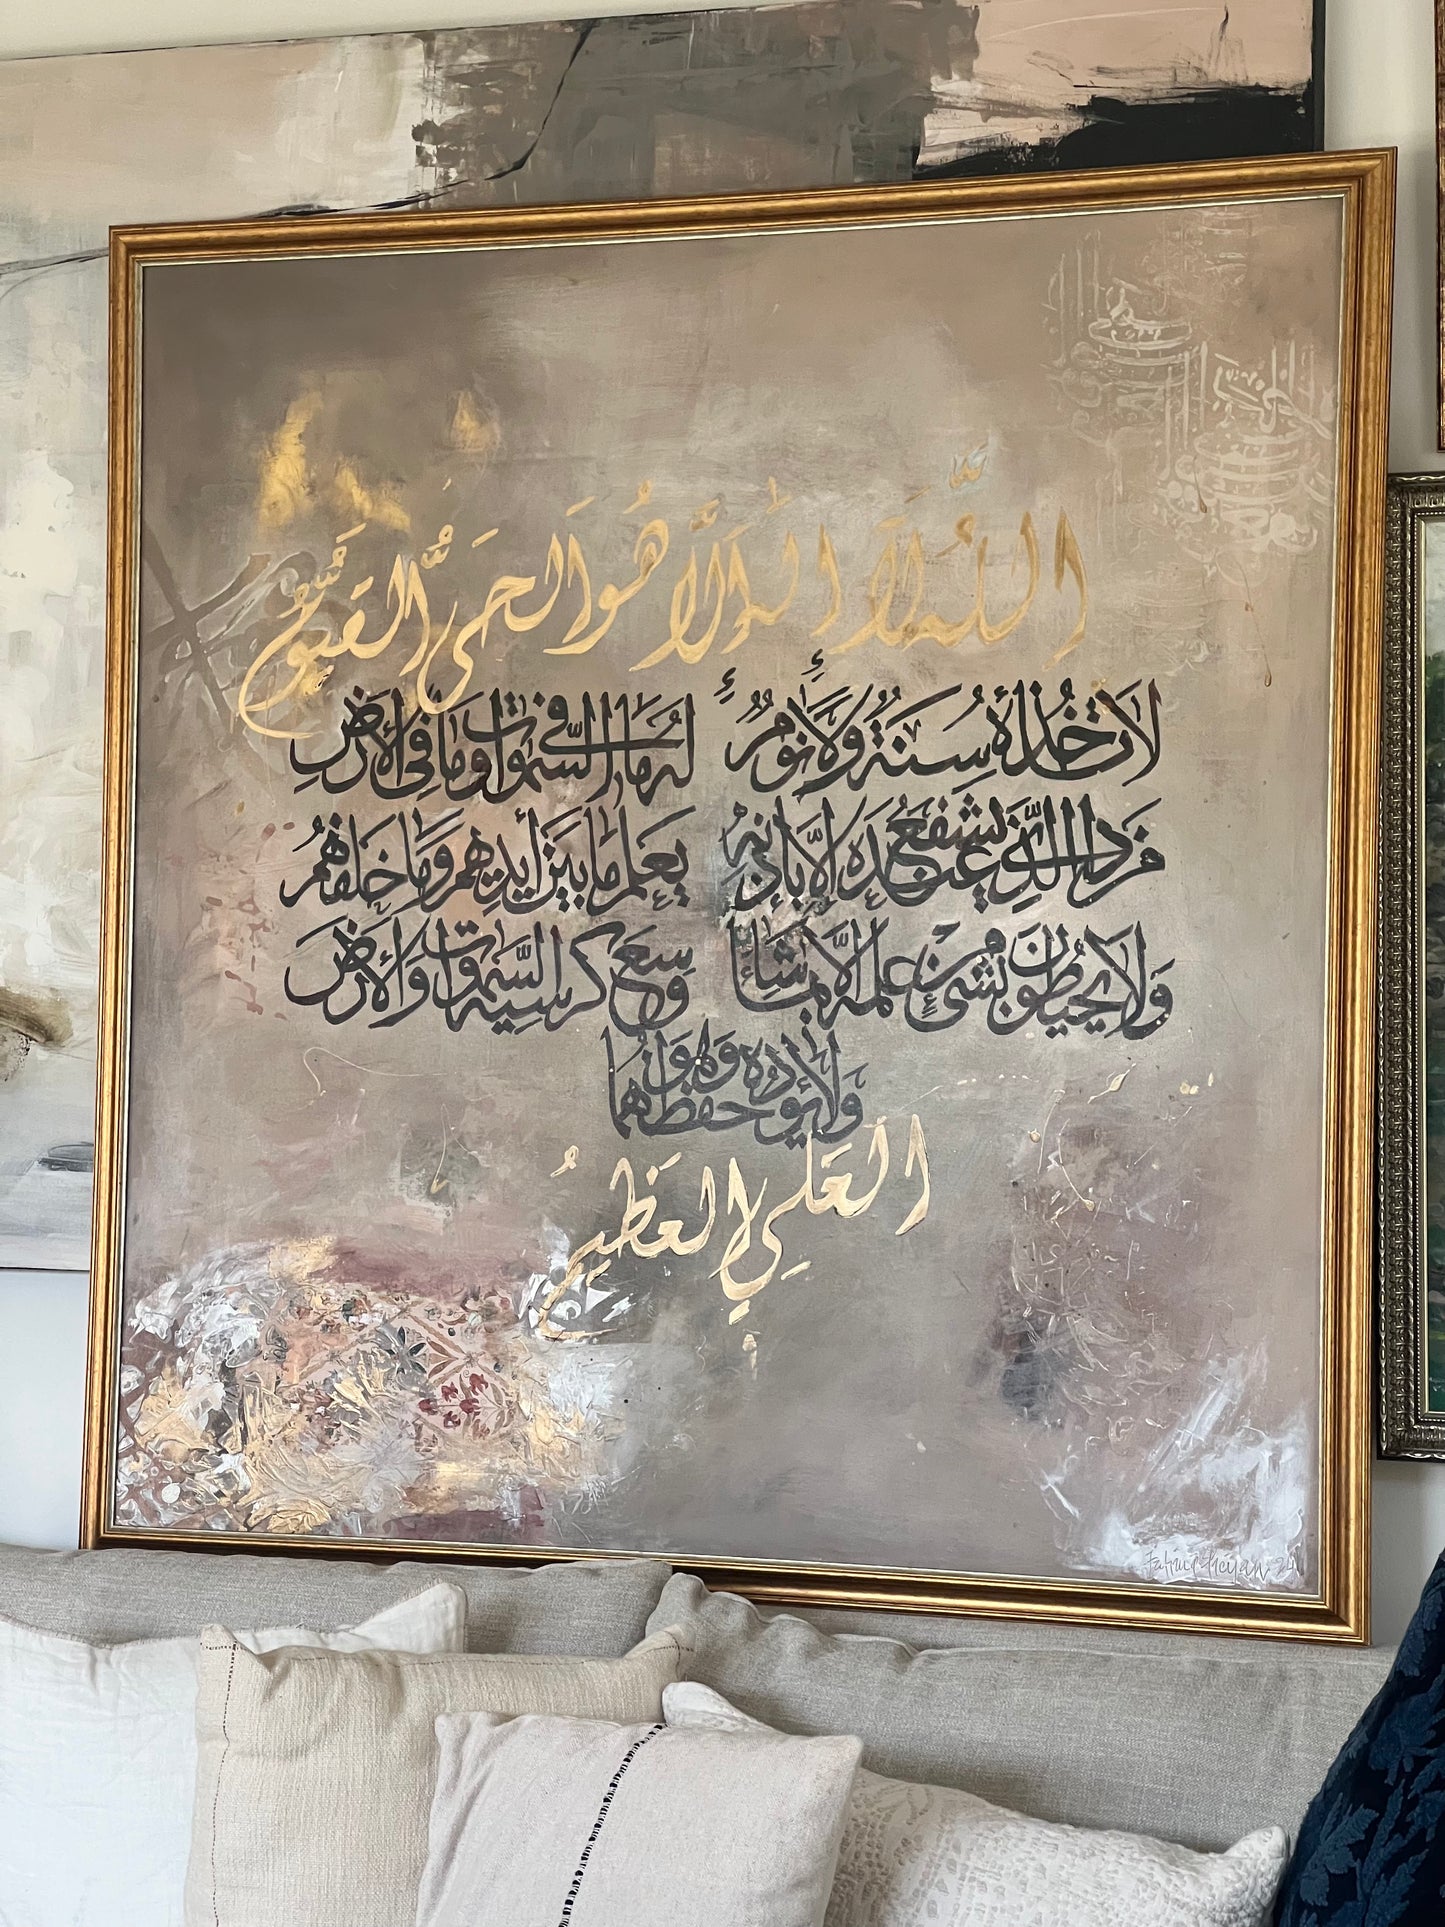 اللّٰهُ لَا اِلٰهَ اِلَّا هُوَ الْحَيُّ الْقَيُّوْمُ
لَا تَأْخُذُهٗ سِنَةٌ وَّلَا نَوْمٌ لَهٗ مَا فِي السَّمٰوٰتِ وَمَا فِي الْأَرْضِ
مَنْ ذَا الَّذِيْ يَشْفَعُ عِنْدَهٗ إِلَّا بِإِذْنِهٖ يَعْلَمُ مَا بَيْنَ أَيْدِيْهِمْ وَمَا خَلْفَهُمْ
وَلَا يُحِيْطُوْنَ بِشَيْءٍ مِّنْ عِلْمِهٖ إِلَّا بِمَا شَاءَ وَسِعَ كُرْسِيُّهُ السَّمٰوٰتِ وَالْأَرْضَ
وَلَا يَئُوْدُهٗ حِفْظُهُمَا وَهُوَ
الْعَلِيُّ الْعَظِيْمُ